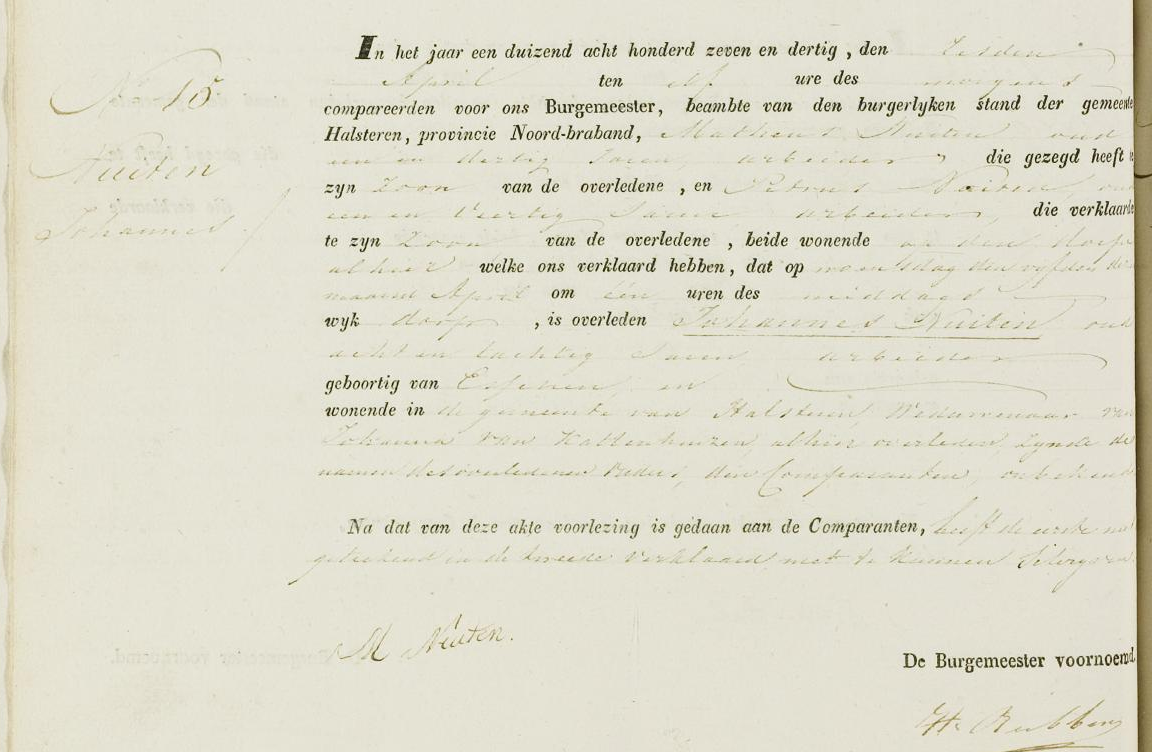 In het jaar een duizend acht honderd zeven en dertig, den Zesden
April ten elf ure des morgens
No 15
compareerden voor ons Burgemeester, beambte van den burgerlyken stand der gemeente
Halsteren, provincie Noord-braband, Matheus Nuiten oud
een en dertig Jaren arbeider, die gezegd heeft
Nuiten
zyn Zoon van de overledene, en Petrus Nuiten, oud
een en Veertig Jaren arbeider, die verklaarde
Johannes
te zyn Zoon van de overledene, beide wonende en den dorp
alhier welke ons verklaard hebben, dat op woensdag den vyfden der
maand April om één uren des middags
wyk dorp, is overleden Johannes Nuiten oud
acht en tachtig Jaren arbeider
geboortig van Esschen en
wonende in de gemeente van Halsteren, Weduwenaar van
Johanna van Hattenhuizen, alhier overleden, zynde de
namen des overledenen Ouders, den Comparanten, onbekend
Na dat van deze akte voorlezing is gedaan aan de Comparanten, heeft de eerste
geteekend en de tweede verklaard niet te kunnen Schryven
M Nuiten.
De Burgemeester voornoemd